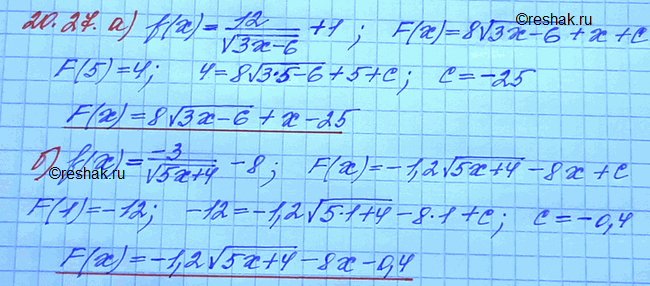 ©reshak.ru
20.27. а) f(x)=12/√(3x-6) +1; F(x)=8√(3x-6)+x+C
F(5)=4; 4=8√(3·5-6)+5+C; C=-25
F(x)=8√(3x-6)+x-25
©reshak.ru
б) f(x)=-3/√(5x+4) -8; F(x)=-1,2√(5x+4)-8x+C
F(1)=-12; -12=-1,2√(5·1+4)-8·1+C; C=-0,4
F(x)=-1,2√(5x+4)-8x-0,4